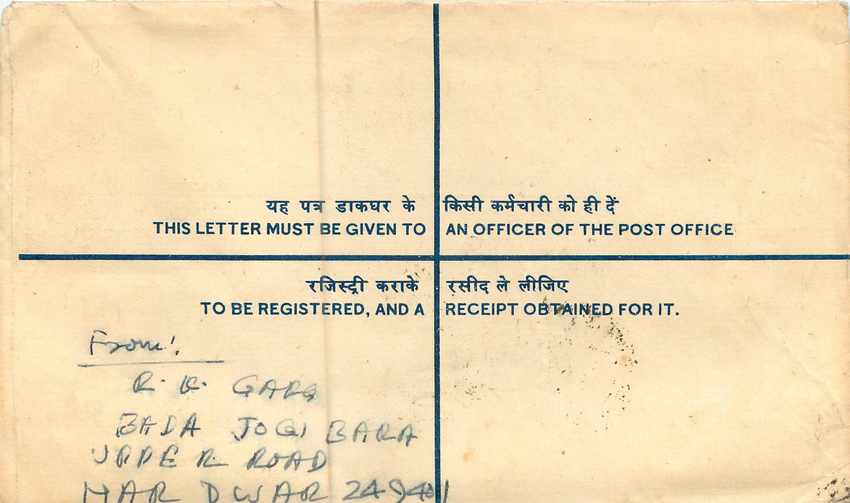 यह पत्र डाकघर के किसी कर्मचारी को ही दें
THIS LETTER MUST BE GIVEN TO AN OFFICER OF THE POST OFFICE
रजिस्ट्री कराके रसीद ले लीजिए
TO BE REGISTERED, AND A RECEIPT OBTAINED FOR IT.
From:
R. K. GARG
BADA JOGI BARA
UPPER ROAD
HARDWAR 249401